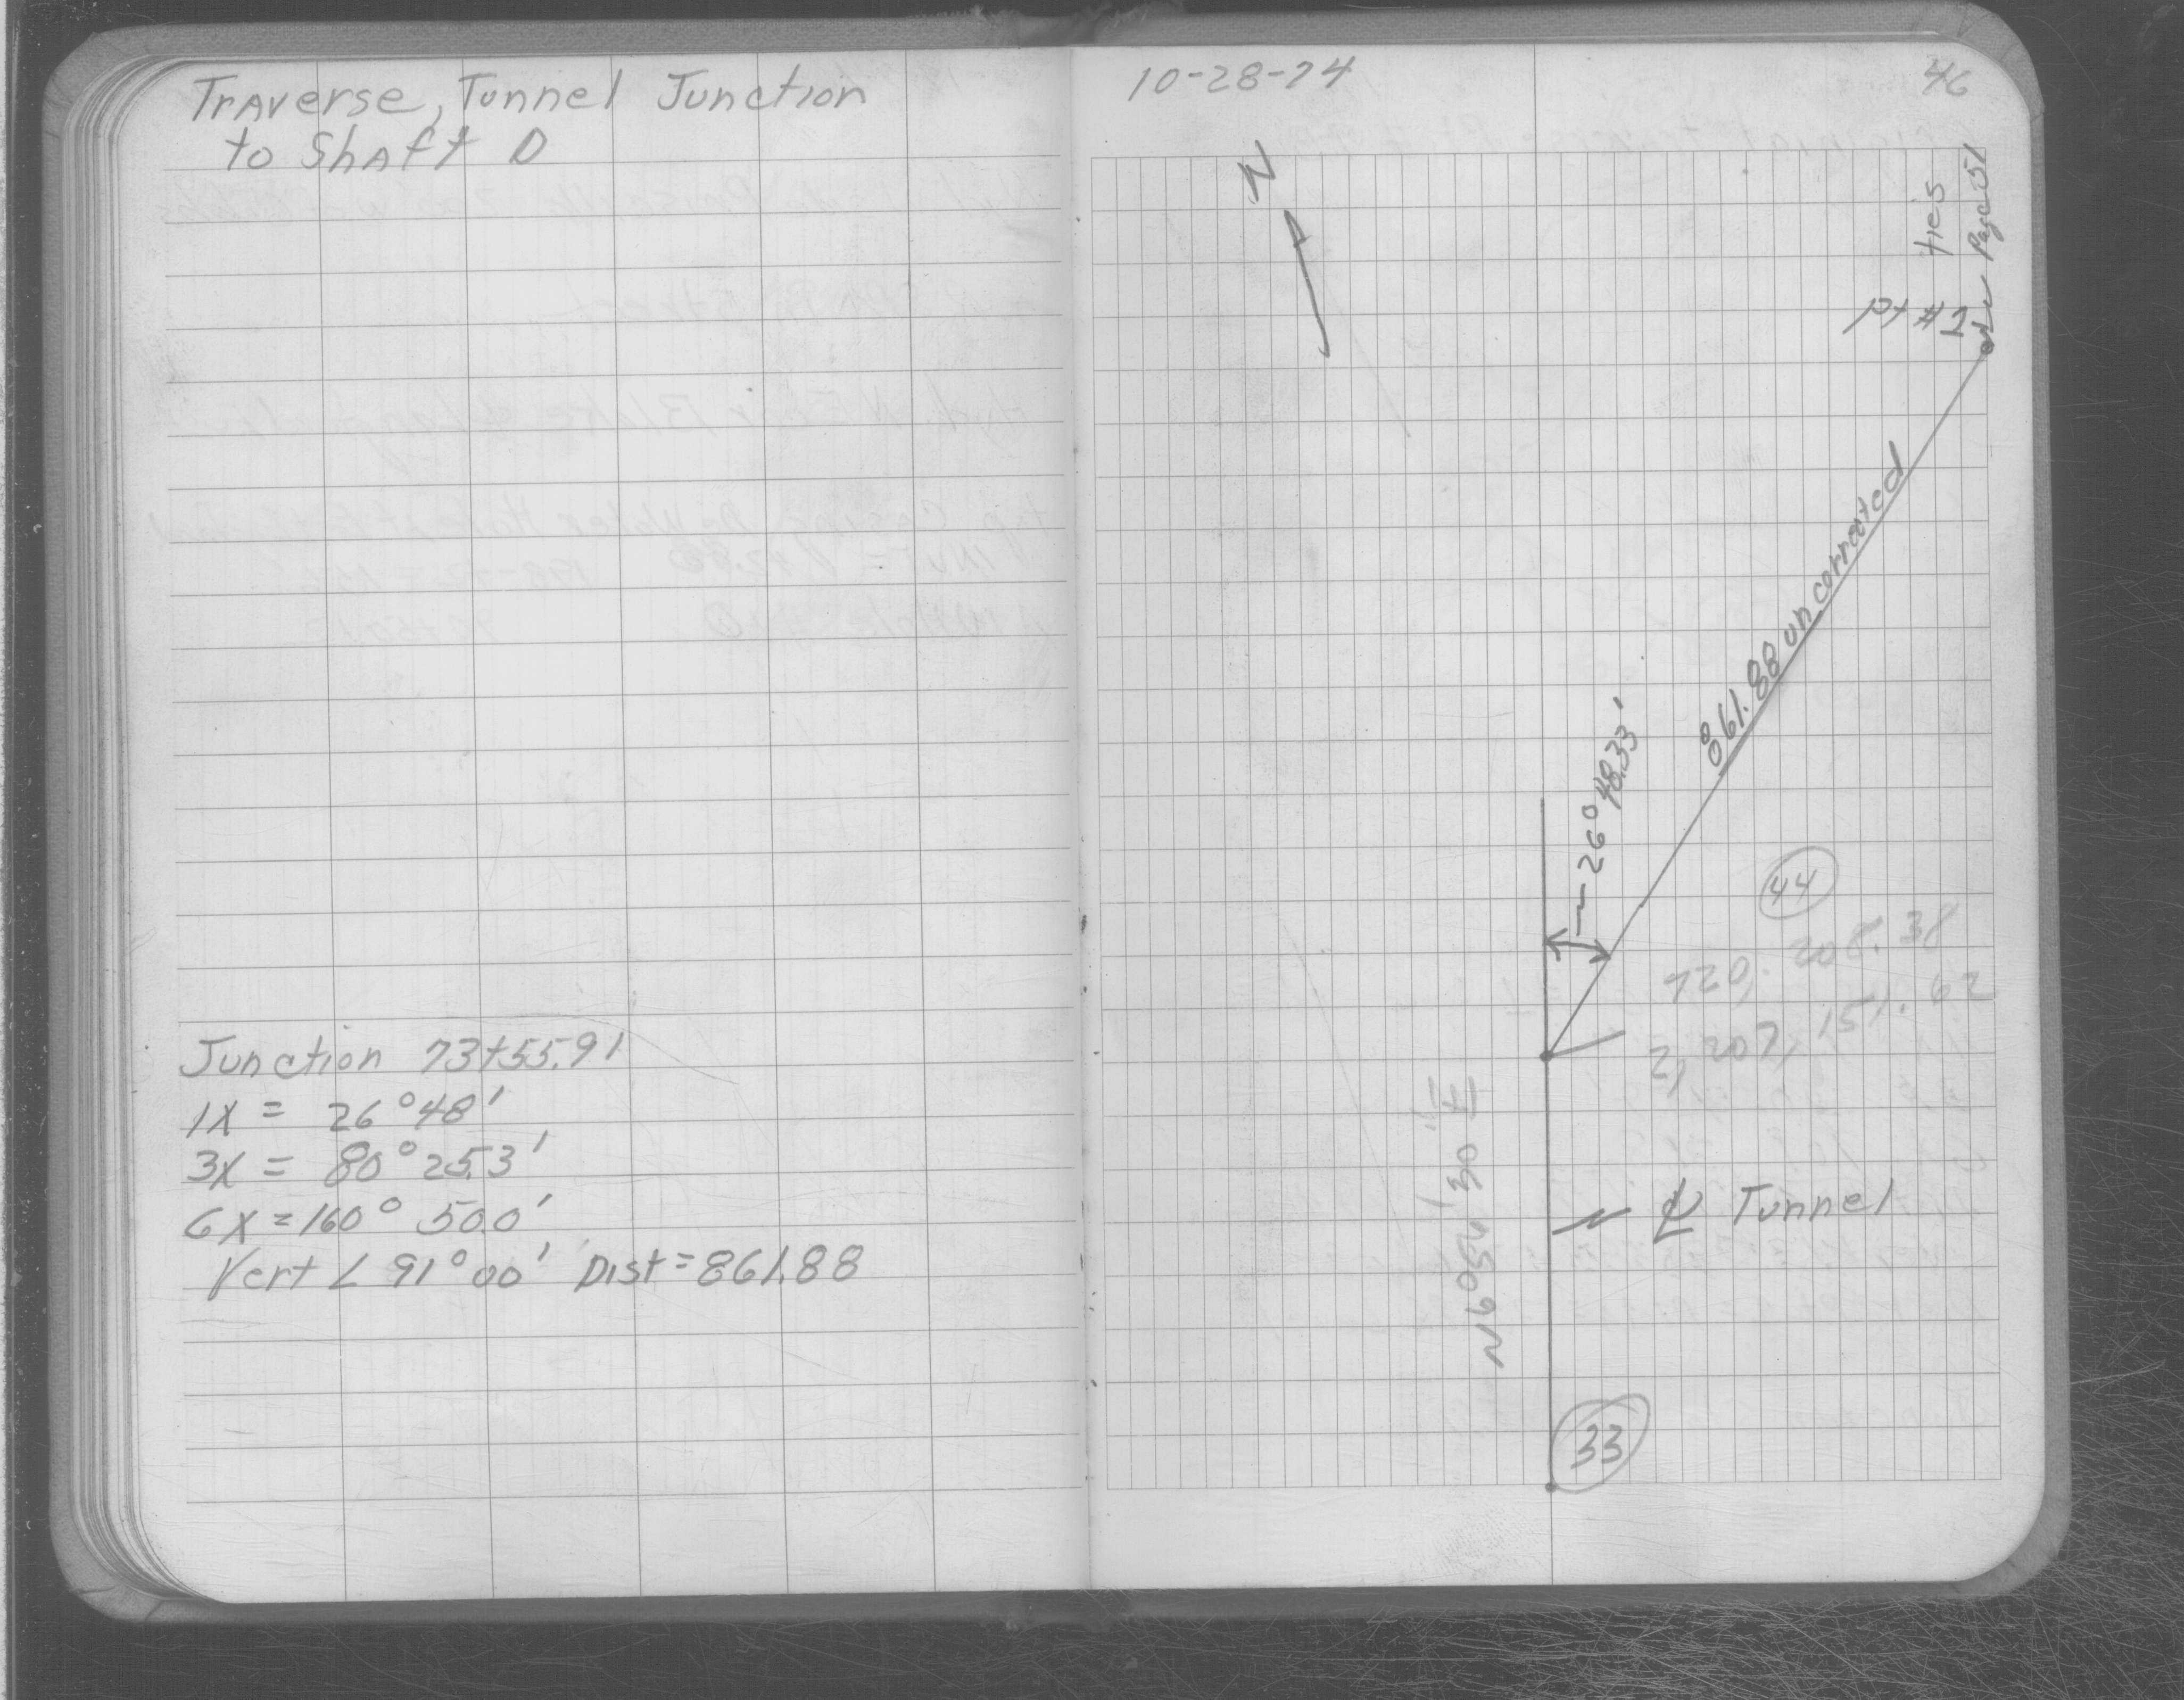 Traverse, Tunnel Junction
to Shaft D
Junction 73+55.91
1X = 26°48'
3X = 80°25.3'
6X = 160° 50.0'
Vert ∠ 91°00' Dist = 861.88
10-28-74
46
N
ties
Page 51
Pt #2
861.88 uncorrected
26°48.33'
44
720, 208.38
2,207,151.62
N6°05W
℄ Tunnel
33